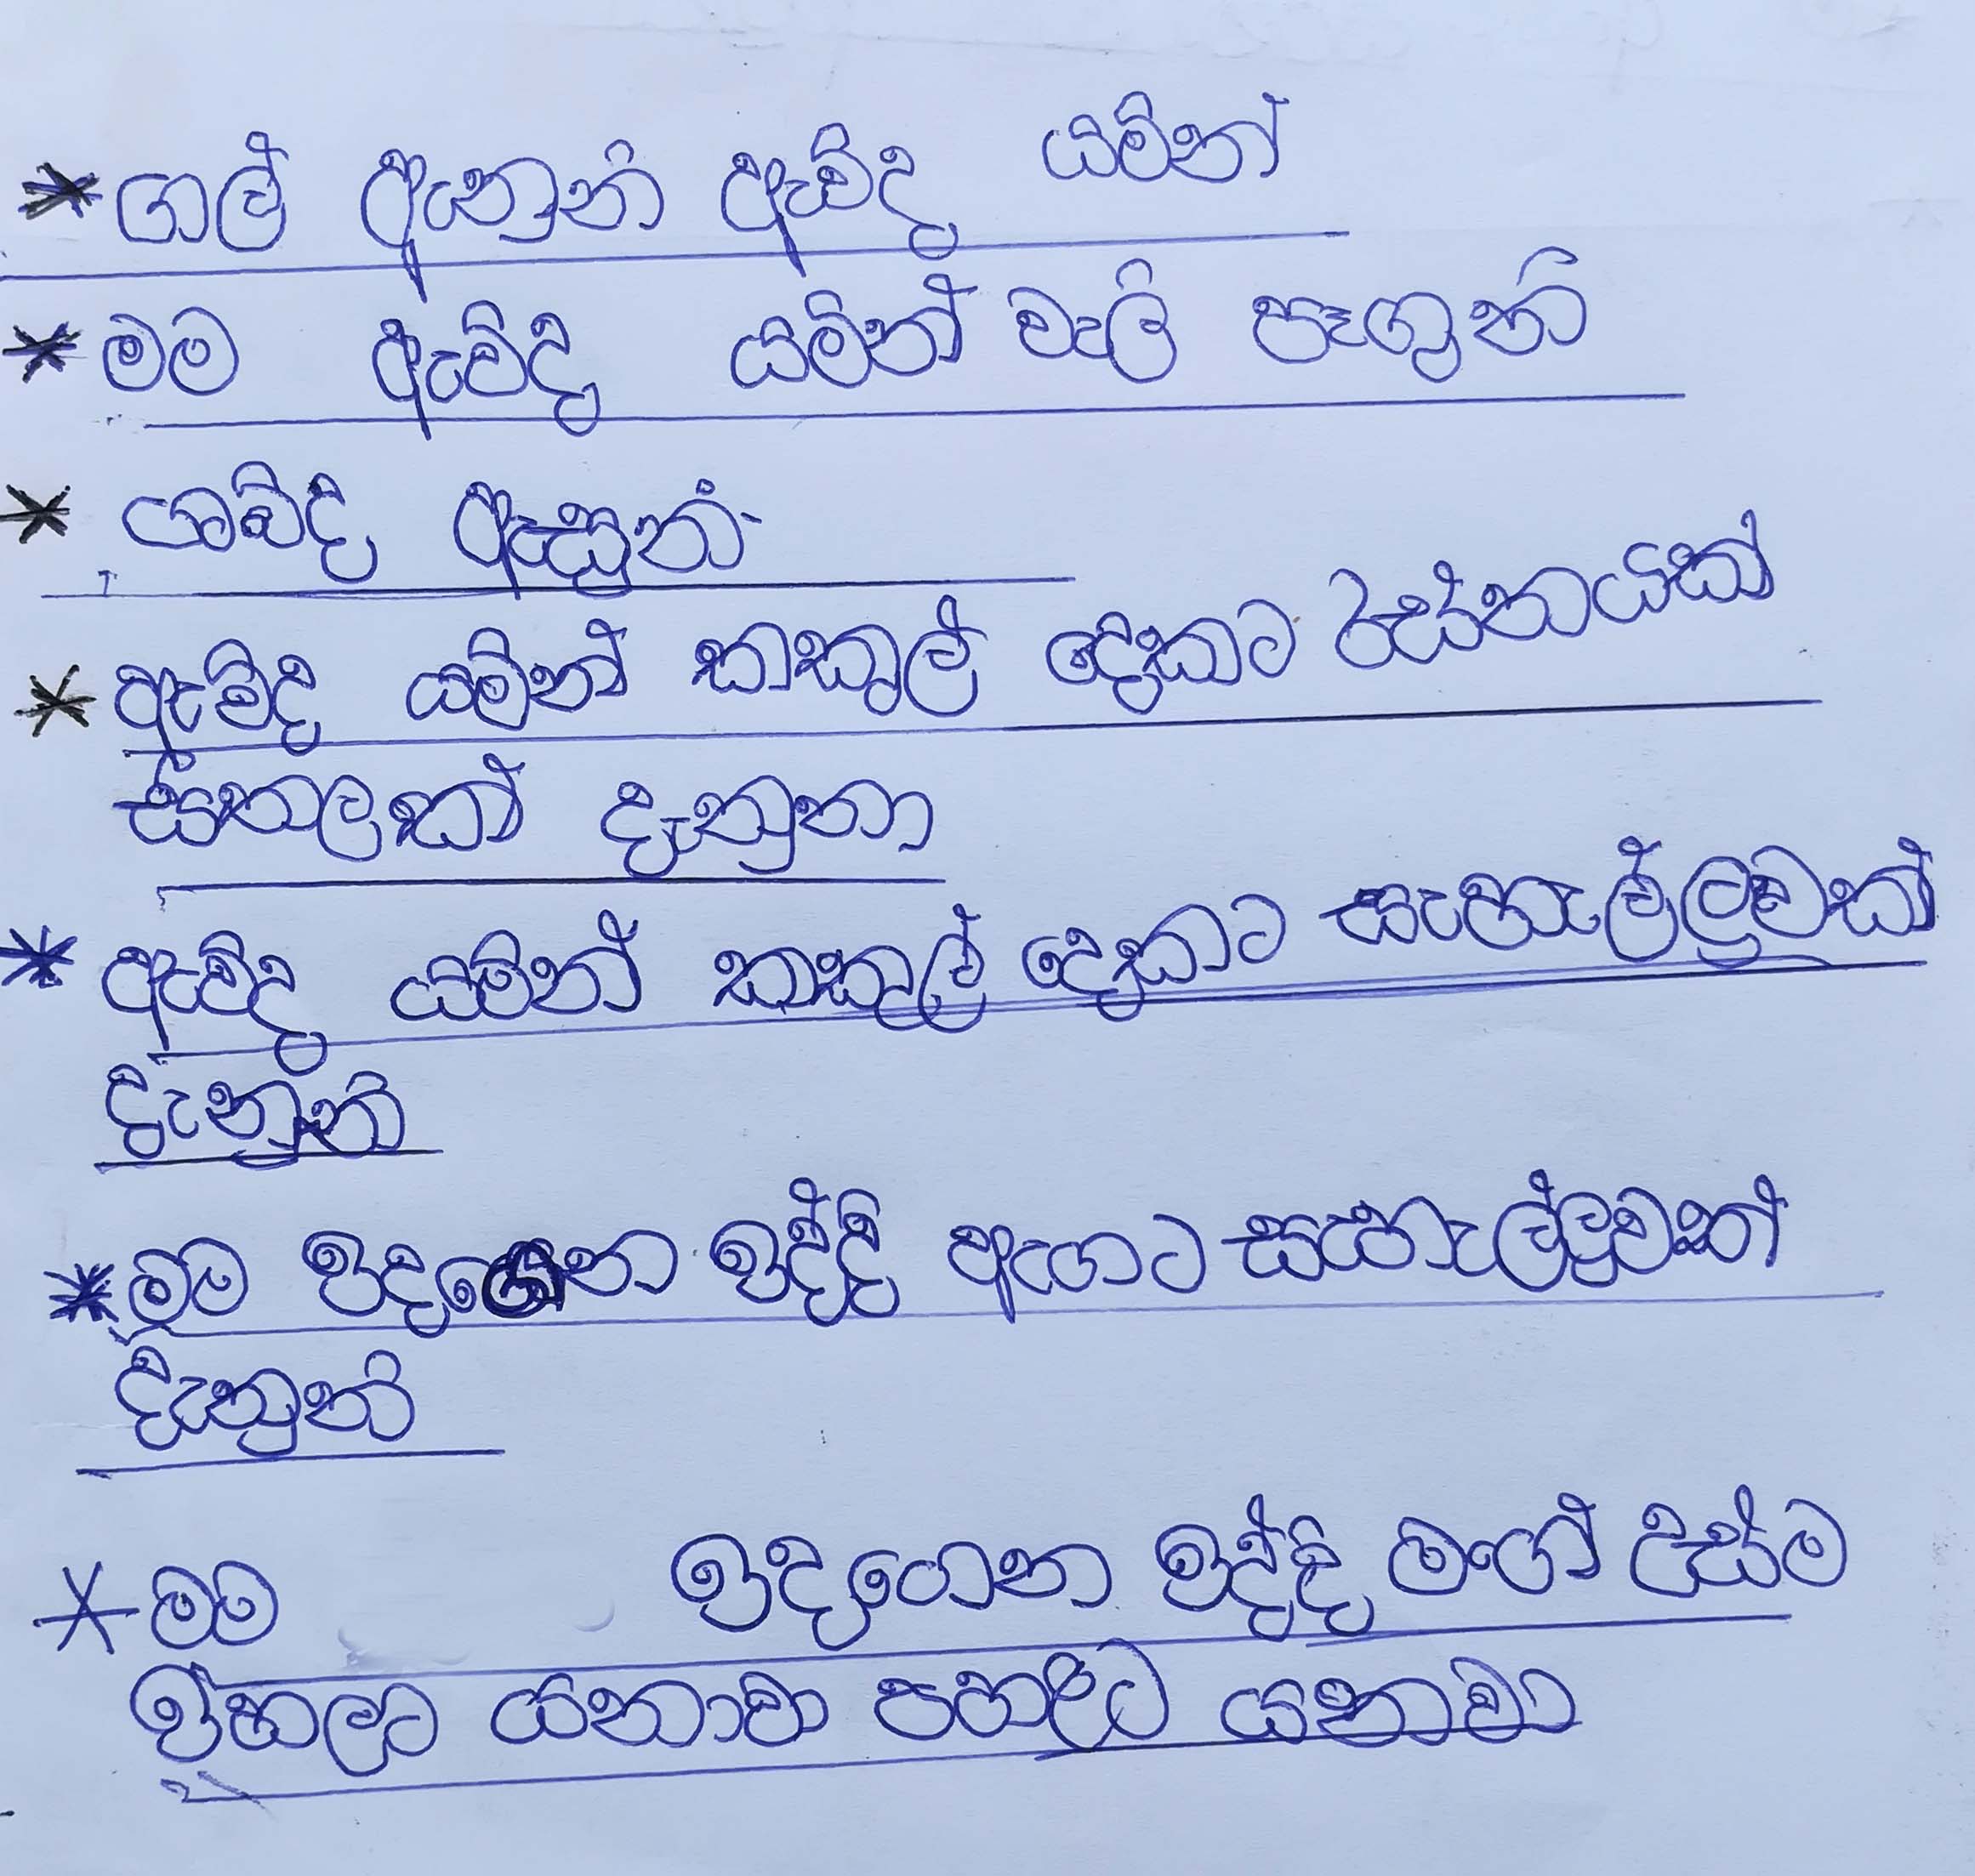 * ගල් ඇනුනි ඇවිද යමින්
* මම ඇවිද යමින් වැලි පෑගුනි
* ශබ්ද ඇසුනි
* ඇවිද යමින් කකුල් දෙකට රස්නයක්
සීතලක් දැනුනා
* ඇවිද යමින් කකුල් දෙකට සැහැල්ලුවක්
දැනුනි
* මම ඉදගෙන ඉද්දි ඇගට සැහැල්ලුවක්
දැනුනි
* මම ඉදගෙන ඉද්දි මගේ උස්ම
ඉහලට යනාවා පහලට යනවා